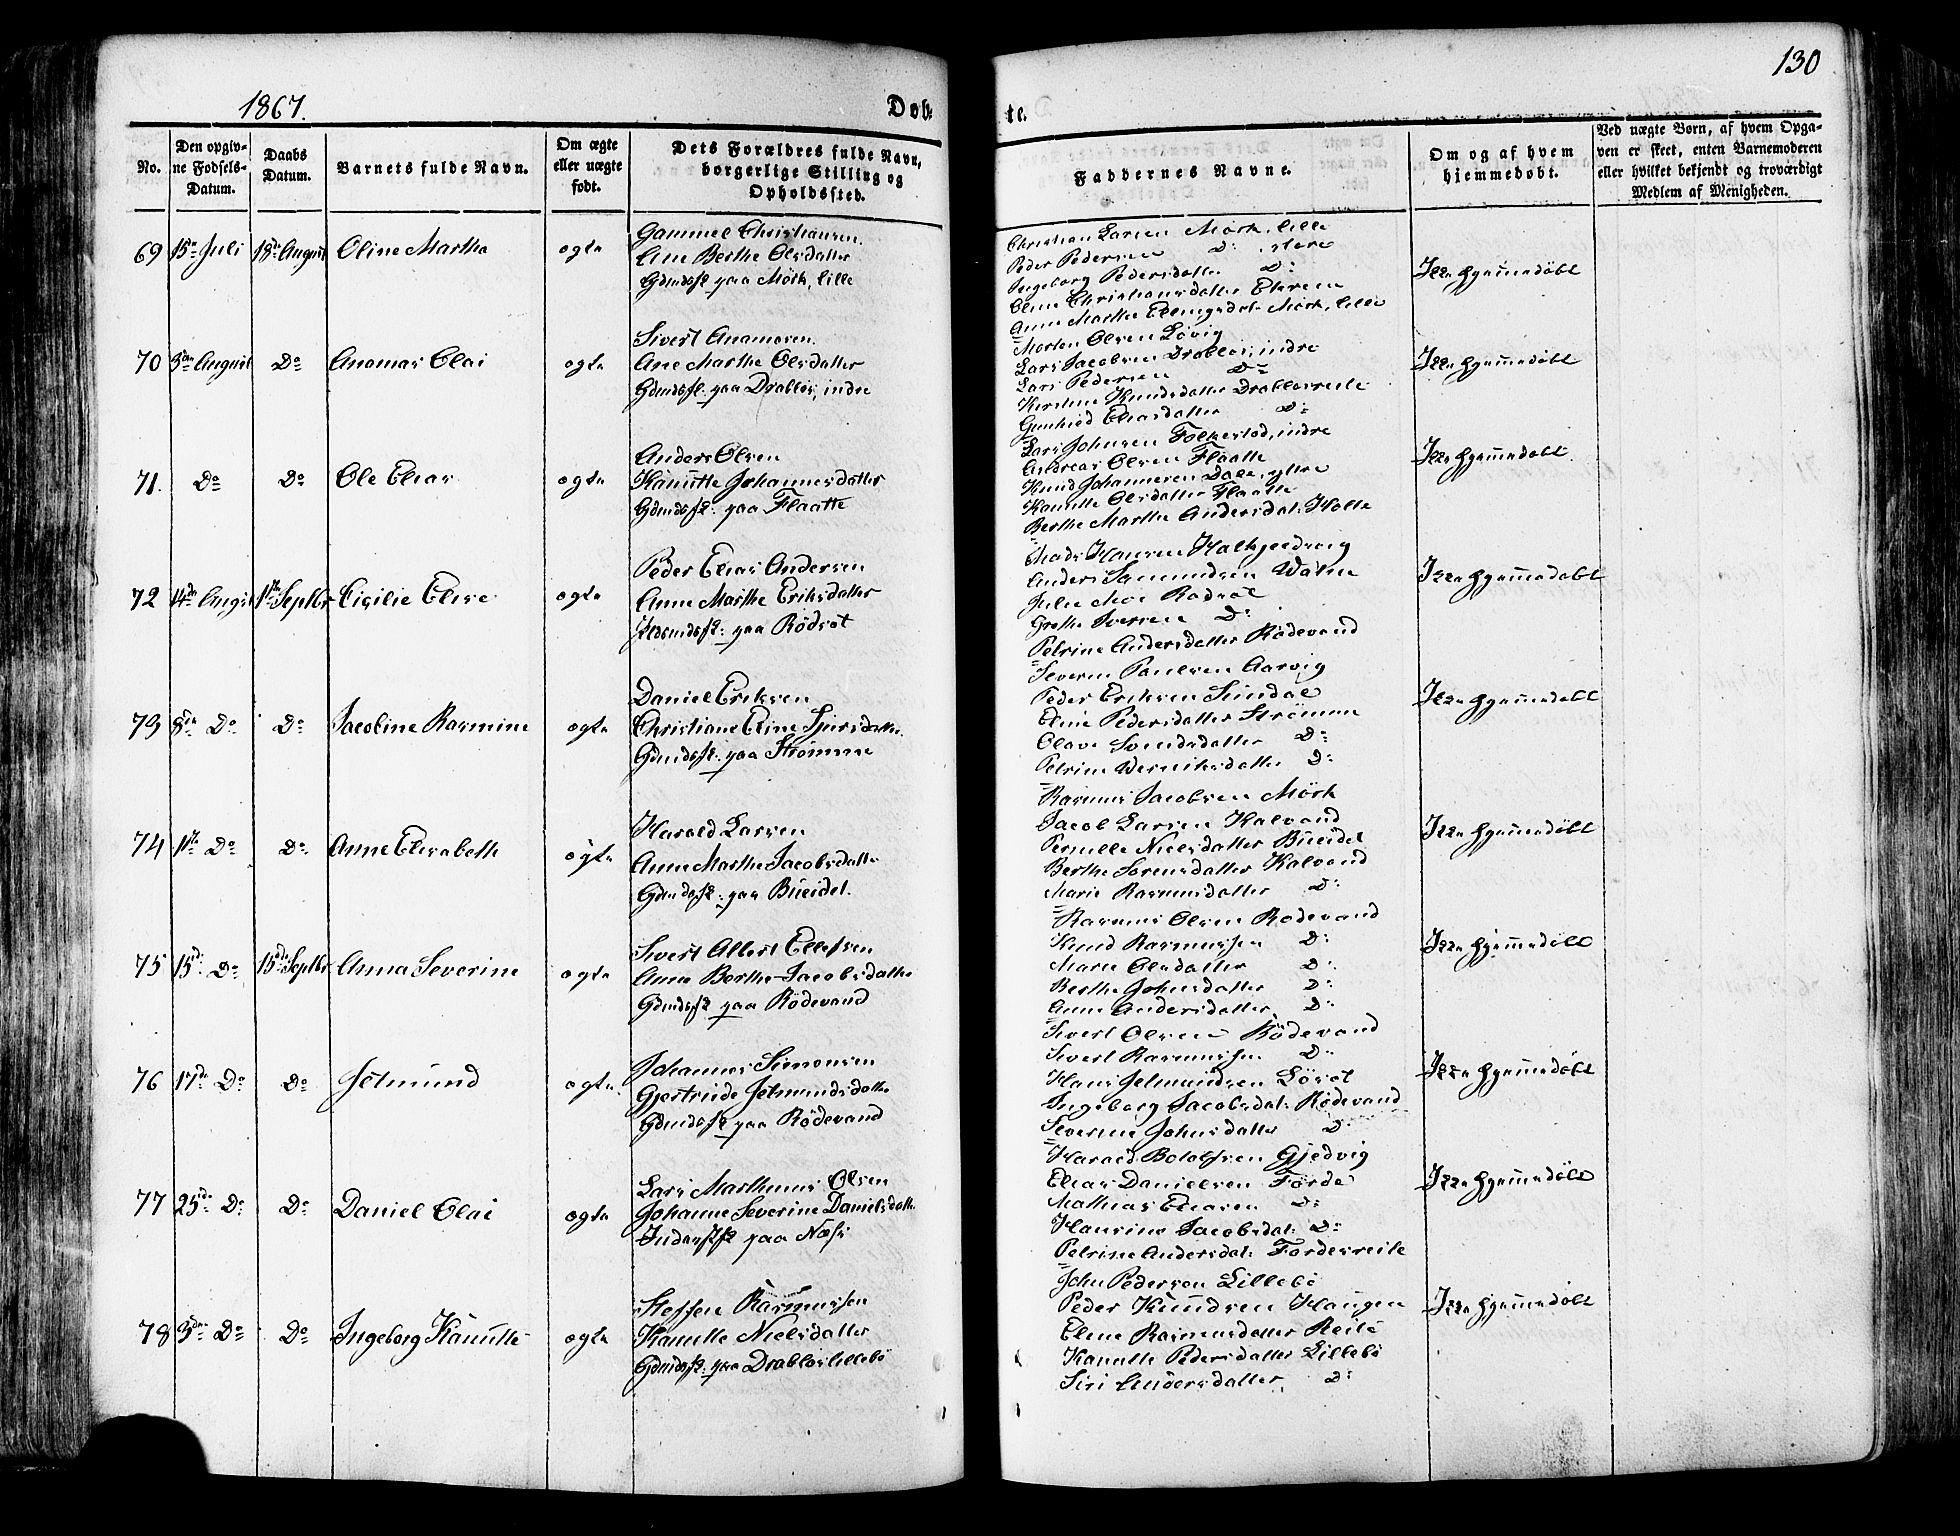 130
1867.
Døb-
te.
No.
Den opgivne Fødsels-Datum.
Daabs Datum.
Barnets fulde Navn.
Om ægte eller uægte født.
Dets Forældres fulde Navn, borgerlige Stilling og Opholdssted.
Faddernes Navne.
Om og af hvem hjemmedøbt.
Ved uægte Børn, af hvem Opgaven er skeet, enten Barnemoderen eller hvilket bekjendt og troværdigt Medlem af Menigheden.
69 15de Juli 18de August Oline Martha ægte
Gammel Christiansen
Ane Berthe Olsdatter
Gdmdsf paa Mørk, lille
Christian Larsen Mørk, lille
Peder Pedersen Do store
Ingeborg Pedersdatter Do
Oline Christiansdatter
Anne Marthe Mørk, lille
Ikke hjemmedøbt
70 3die August Do Anamas Olai ægte
Sivert Anamasen.
Ane Marthe Olsdatter
Gdmdsf. paa Drabløs, indre
Morten Olsen Løvig
Lars Jacobsen Drabløs, indre
Lars Pedersen Do
Kirstine Knudsdatter Drabløsreite
Gunhild Eliasdatter Do
Ikke hjemmedøbt
71. Do Do Ole Elias ægte
Anders Olsen
Kanutte Johannesdatter
Gdmdsf: paa Flaatte
Lars Johnsen Folkestad, indre
Andreas Olsen Flaatte
Knud Johannesen Dale, yttre
Kanutte Olsdatter Flaatte
Berthe Marthe Andersdat: Holte
Ikke hjemmedøbt.
72 14de August 1ste Septbr Cicilie Elise ægte
Peder Elias Andersen
Anne Marthe Eriksdatter
paa Rødsæt
Mads Hansen
Anders Samundsen
Julie Moe Rødsæt
Grethe Iversen Do
Petrine Andersdatter Rødevand
Ikke hjemmedøbt
73 8de Do Do Jacobine Rasmine ægte
Daniel Eriksen
Christiane Eline Sjursdatter
Gdmdsf: paa Strømme
Severin Paulsen Aarvig
Peder Eriksen Sundal
Eline Pedersdatter Strømme
Olave Svendsdatter Do
Petrine Do
Ikke hjemmedøbt
74 11te Do Do Anne Elisabeth ægte
Harald Larsen
Anne Marthe Jacobsdatter
Gdmdsf: paa Bueidet.
Rasmus Jacobsen Mørk
Jacob Larsen Kalvand
Pernille Nielsdatter Bueidet
Berthe Sørensdatter Kalvand
Marie Rasmusdatter Do
Ikke hjemmedøbt
75 15de Do 15de Septbr Anna Severine ægte
Sivert Albert Ellefsen
Anne Berthe Jacobsdatter
Gdmdsf paa Rødevand
Rasmus Olsen Rødevand
Knud Rasmussen Do
Marie Olsdatter Do
Berthe Johnsdatter Do
Anne Andersdatter Do
Ikke hjemmedøbt
76 17de Do Do Jetmund ægte
Johannes Simonsen
Gjertrude Jetmundsdatter
Gdmdsf paa Rødevand
Sivert Olsen Rødevand
Sivert Rasmussen Do
Hans Jetmundsen
Ingeborg Jacobsdat: Rødevand
Severine Johnsdatter Do
Ikke hjemmedøbt
77 25de Do Do Daniel Olai ægte
Lars Marthinus Olsen
Johanne Severine Danielsdatter
Inderstf paa Næss
Harald Gjedvig
Elias Danielsen Førde
Mathias Eliasen Do
Hansine Jacobsdat: Do
Petrine Andersdat: Førdesreite
Ikke hjemmedøbt
78 3die Do Do Ingeborg Kanutte ægte
Steffen Rasmussen
Kanutte Nielsdatter
Gdmdsf. paa Drabløs Lillebø
John Pedersen Lillebø
Peder Knudsen Haugen
Eline Rasmusdatter Reite
Kanutte Pedersdatter Lillebø
Siri Andersdatter Do
Ikke hjemmedøbt